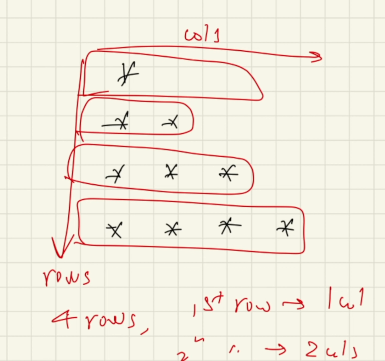 cols
*
* *
* * *
* * * *
rows
4 rows, 1st row → 1 col
2nd " → 2 cols